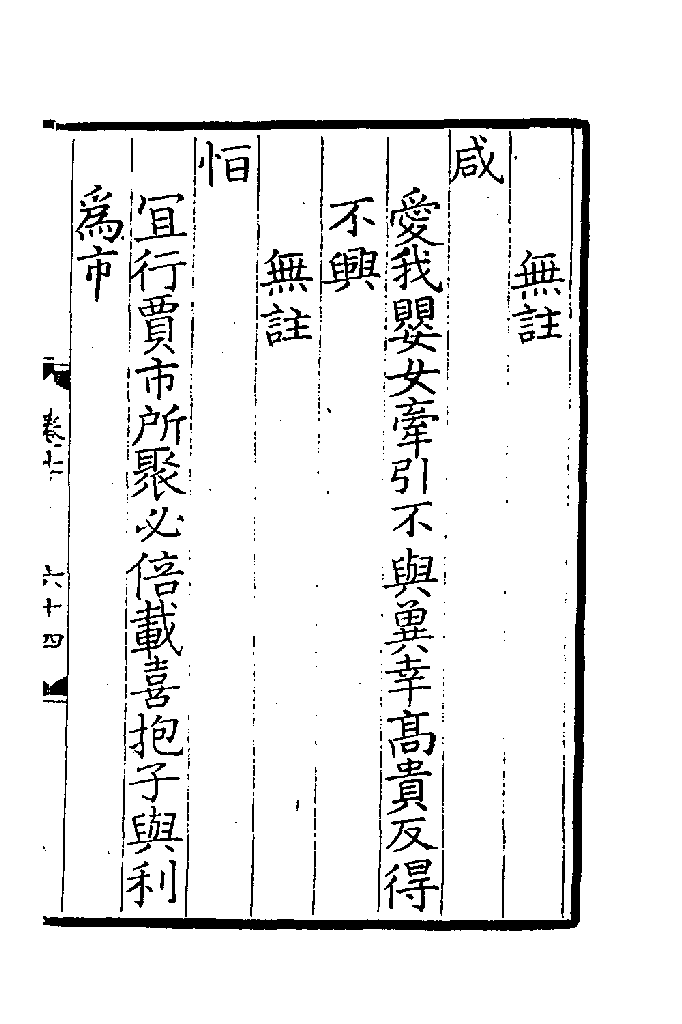 無註
咸
愛我嬰女牽引不與冀幸高貴反得
不興
無註
恒
冝行賈市所聚必倍載喜抱子與利
為市
卷十
六十四